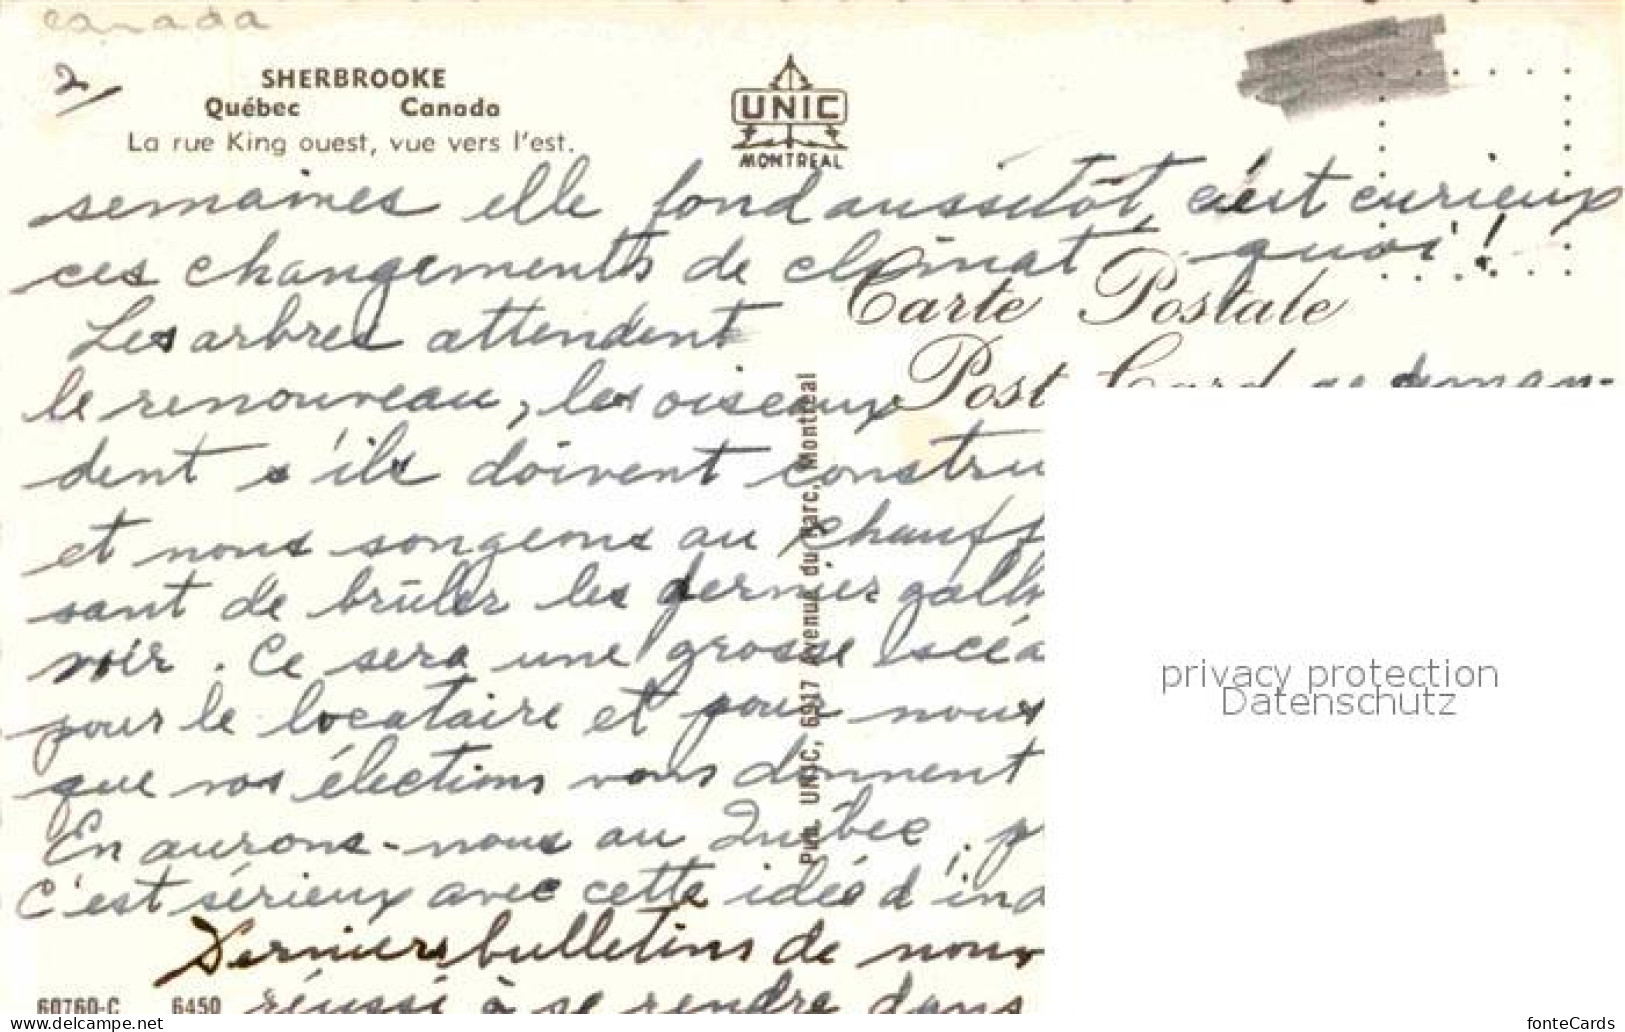 canada
2/
SHERBROOKE
Québec Canada
La rue King ouest, vue vers l'est.
UNIC
MONTREAL
semaines elle fond aussitôt, c'est curieux
ces changements de climat, quoi!
Carte Postale
Les arbres attendent
Post Card se deman-
le renouveau, les oiseaux
dent s'ils doivent constru
et nous songeons au chauff
sant de brûler les dernier gall
voir. Ce sera une grosse
pour le locataire et pour nous
que vos élections vous donnent
En aurons-nous au Québec.
C'est sérieux avec cette idée d'ind
Derniers bulletins de nouv
réussi à se rendre dans
60760-C 6450
Pub. UNIC, 6917 Avenue du Parc, Montreal
privacy protection
Datenschutz
www.delcampe.net
fonteCards